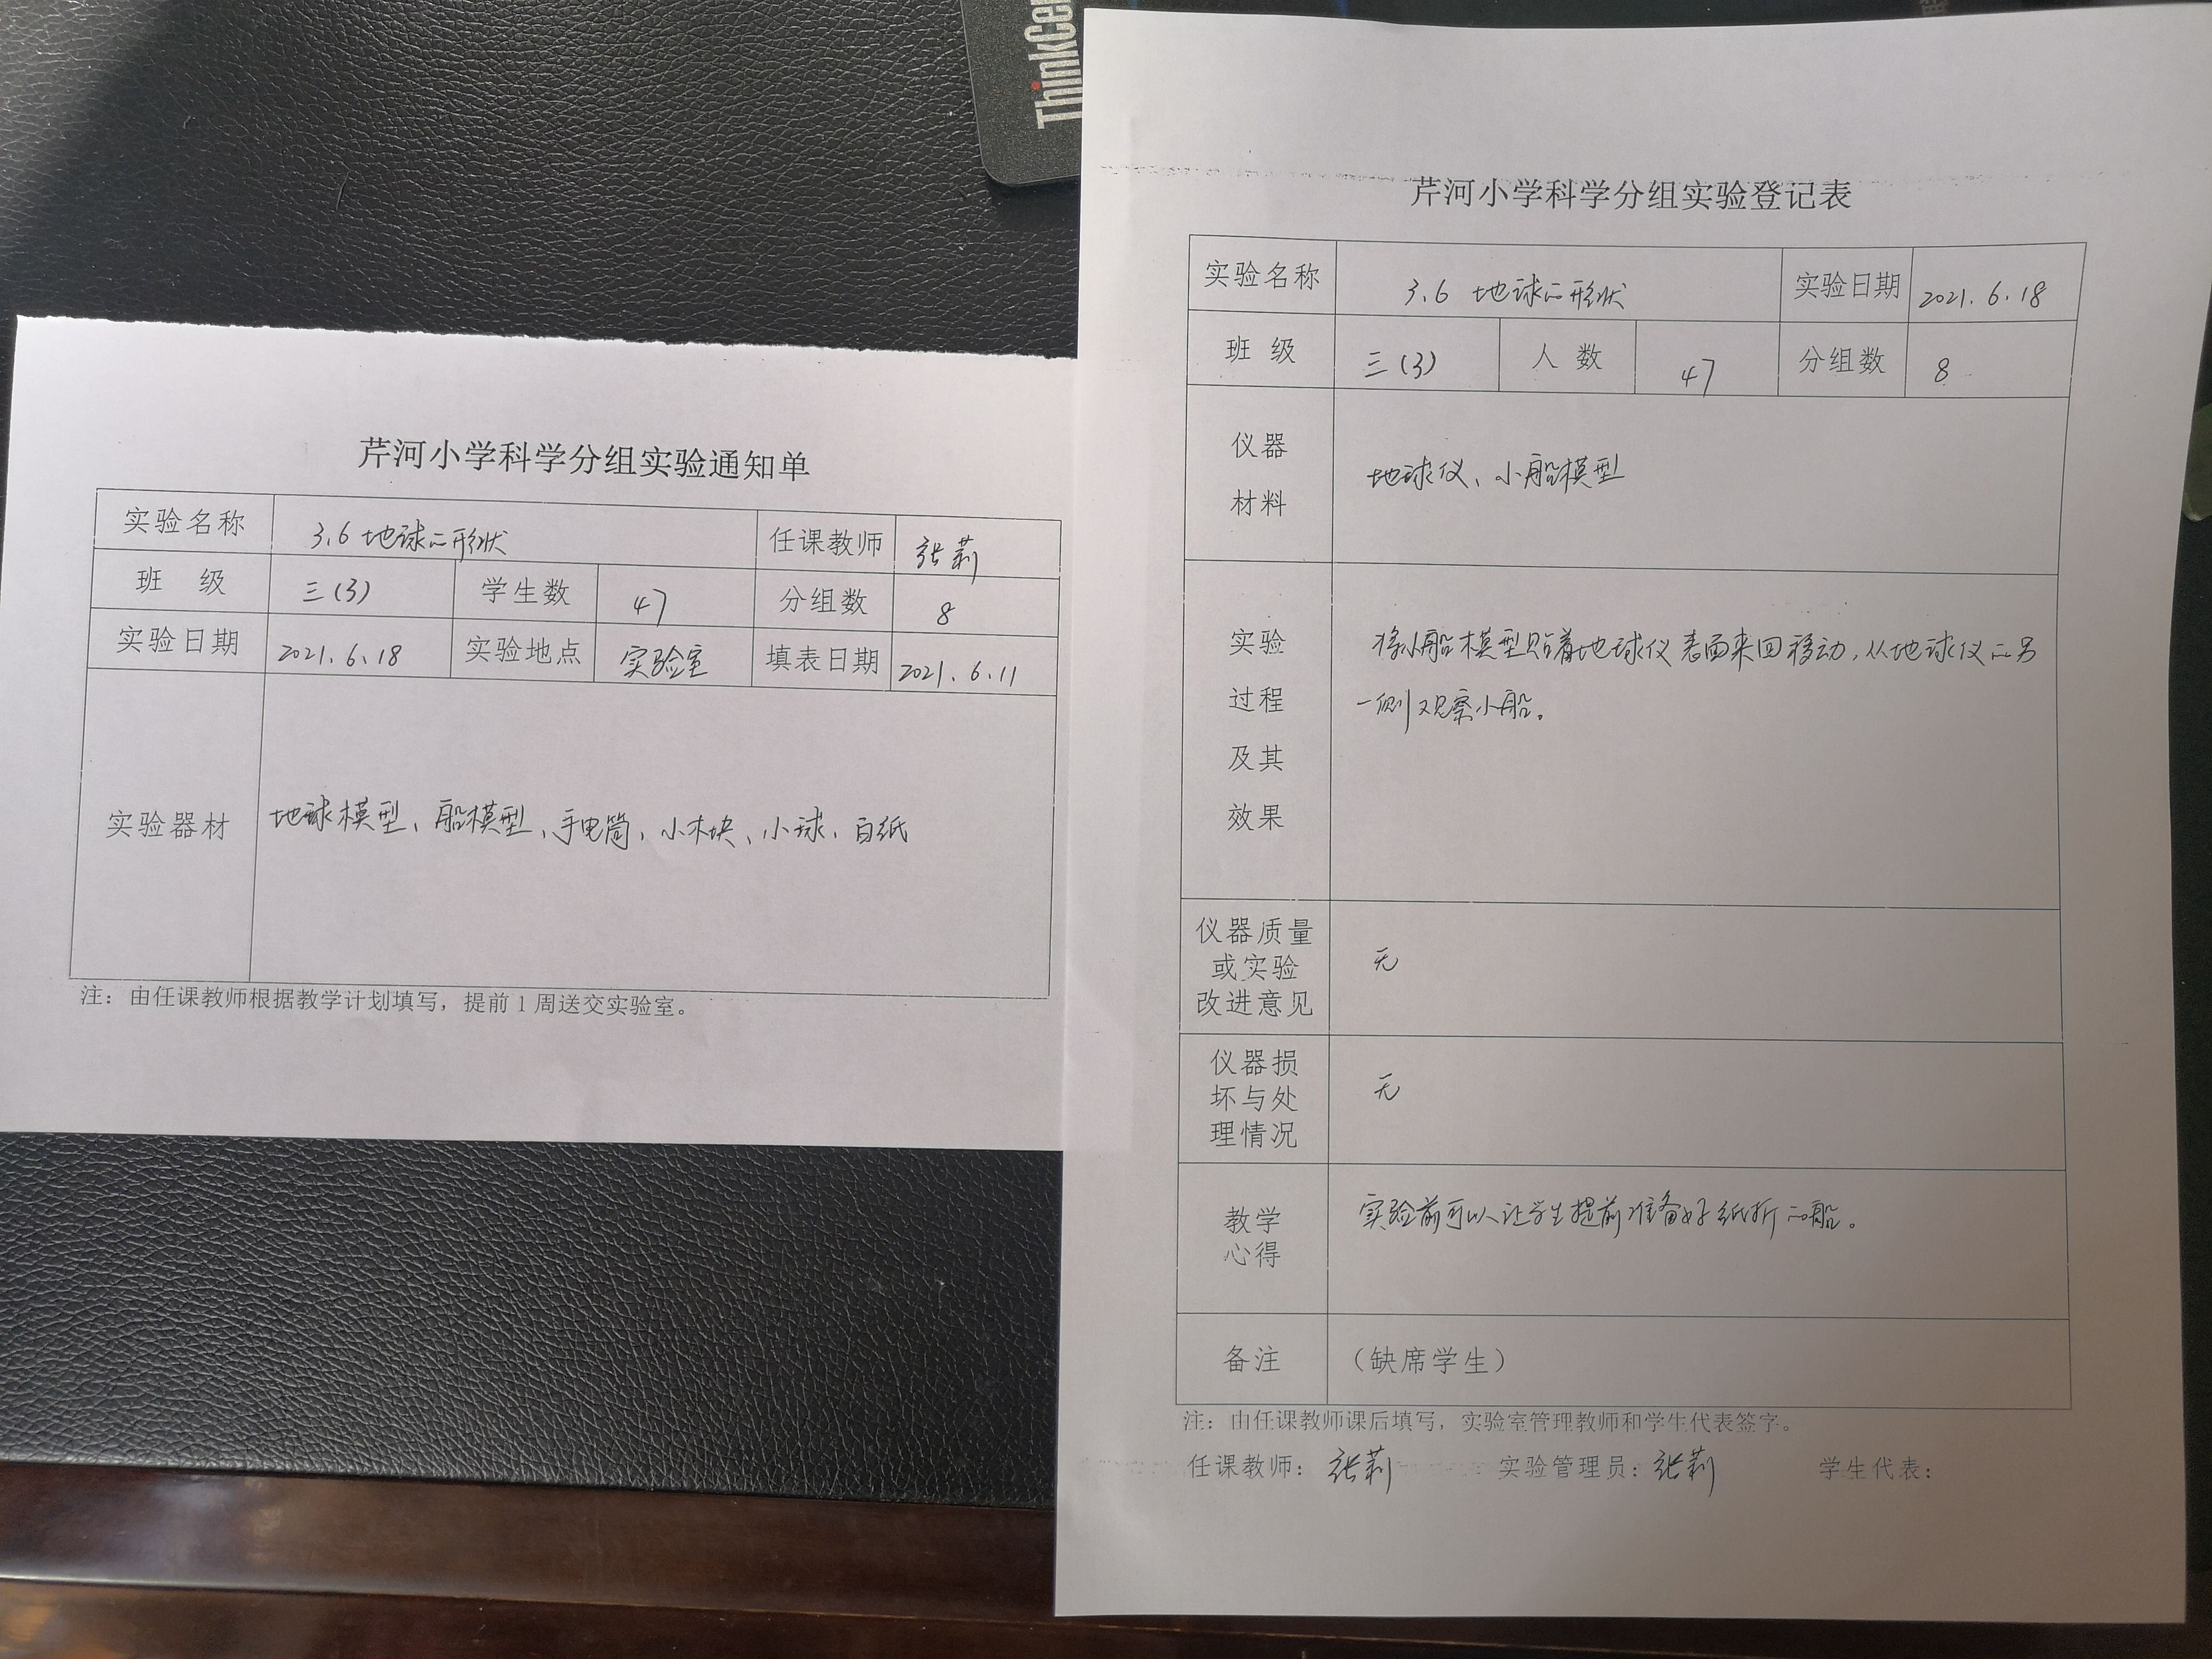 ThinkCen
芹河小学科学分组实验通知单
实验名称 3.6 地球的形状 任课教师 张莉
班 级 三(3) 学生数 47 分组数 8
实验日期 2021.6.18 实验地点 实验室 填表日期 2021.6.11
实验器材 地球模型、船模型、手电筒、小木块、小球、白纸
注：由任课教师根据教学计划填写，提前1周送交实验室。
芹河小学科学分组实验登记表
实验名称 3.6 地球的形状 实验日期 2021.6.18
班 级 三(3) 人 数 47 分组数 8
仪器
材料
地球仪、小船模型
实验
过程
及其
效果
将小船模型贴着地球仪表面来回移动，从地球仪的另
一侧观察小船。
仪器质量
或实验
改进意见
无
仪器损
坏与处
理情况
无
教学
心得
实验前可以让学生提前准备好纸折的船。
备注 （缺席学生）
注：由任课教师课后填写，实验室管理教师和学生代表签字。
任课教师：张莉 实验管理员：张莉 学生代表：